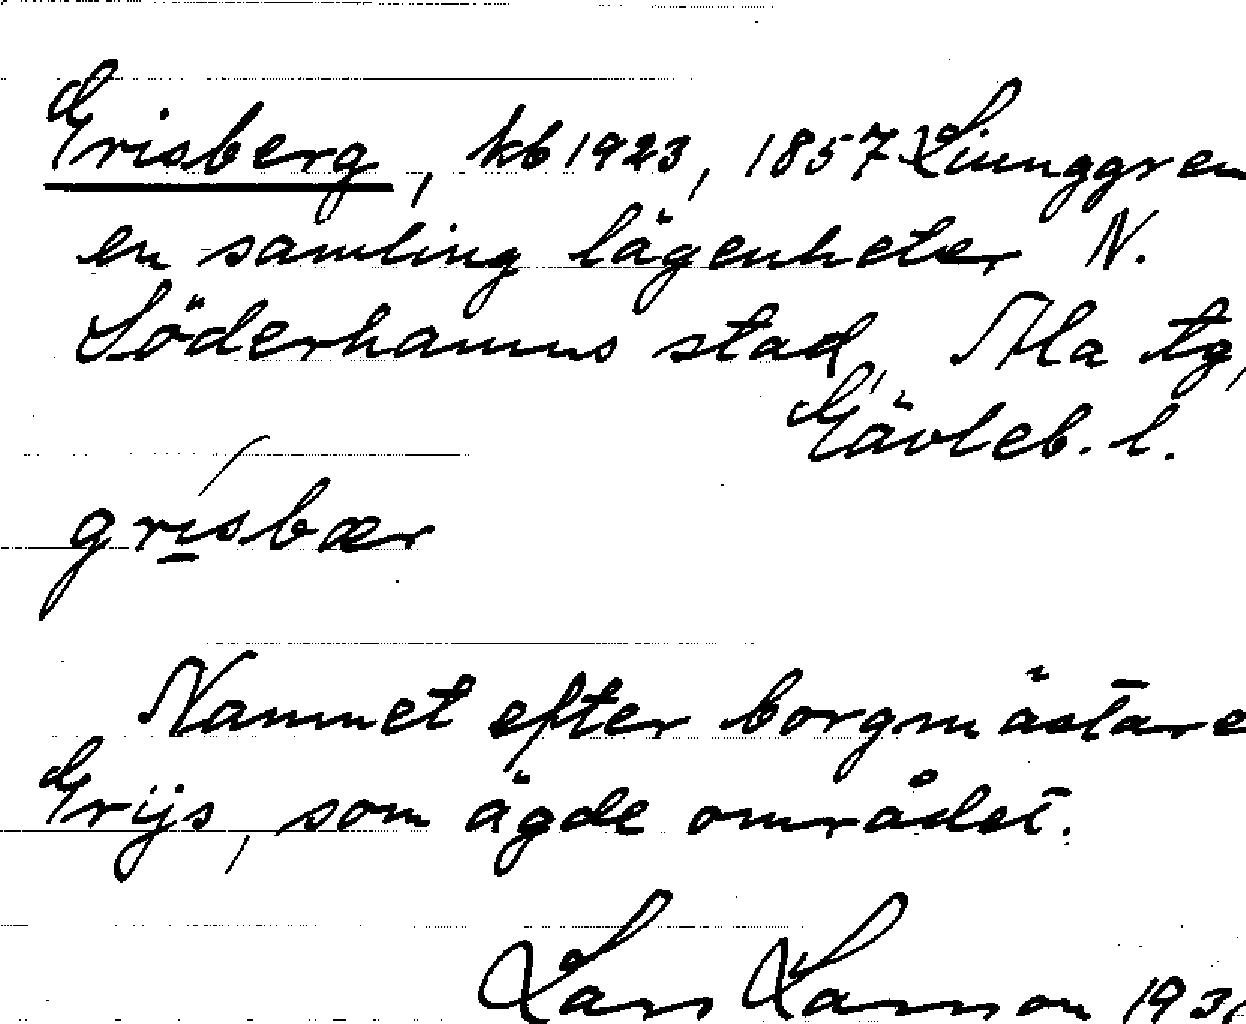 Grisberg, kb 1923, 1857 Ljunggren
en samling lägenheter N.
Söderhamns stad, Ala tg,
Gävleb. l.
grisbær
Namnet efter borgmästare
Grijs, som ägde området.
Lars Larsson